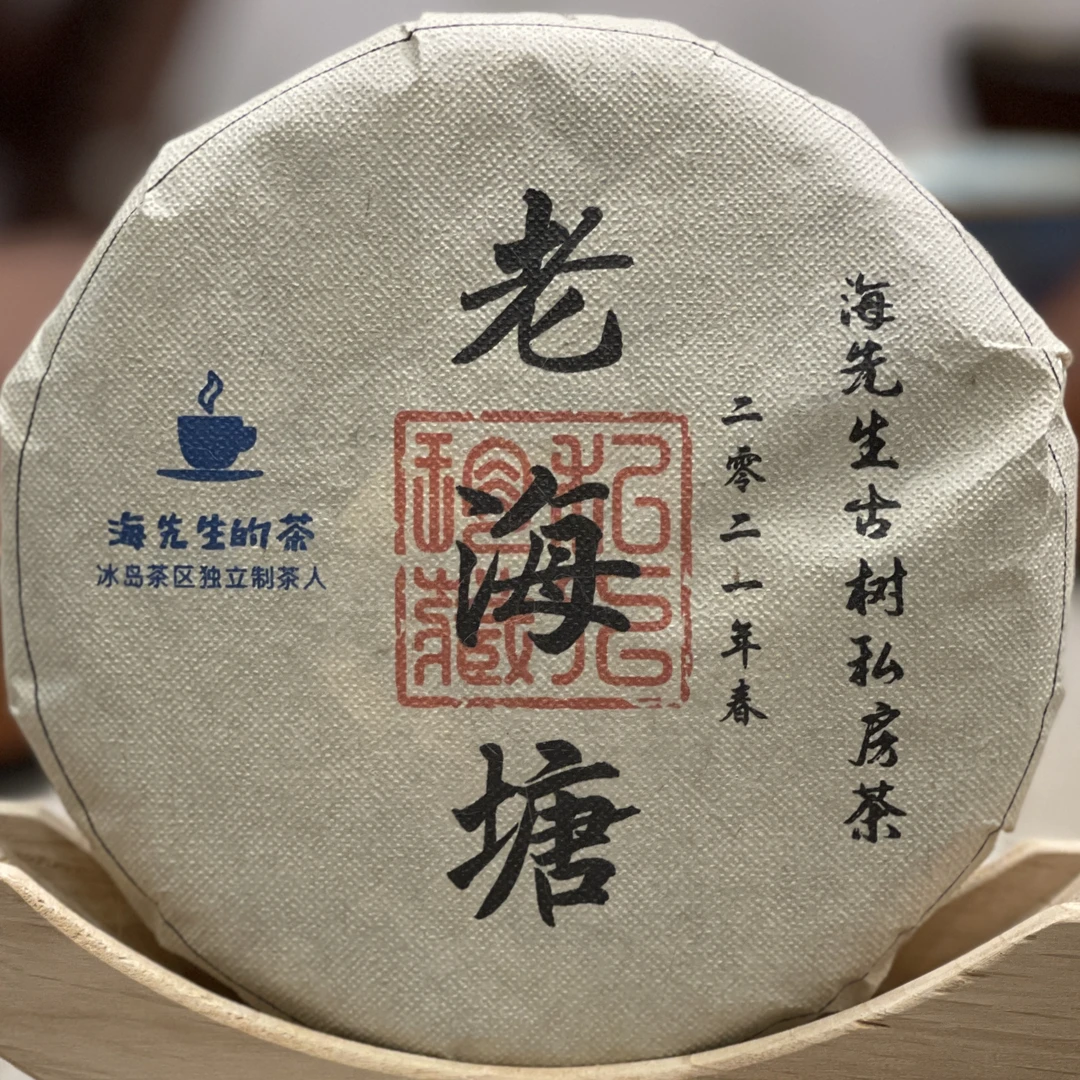 老海塘
私房
珍藏
二零二一年春
海先生古树私房茶
海先生的茶
冰岛茶区独立制茶人